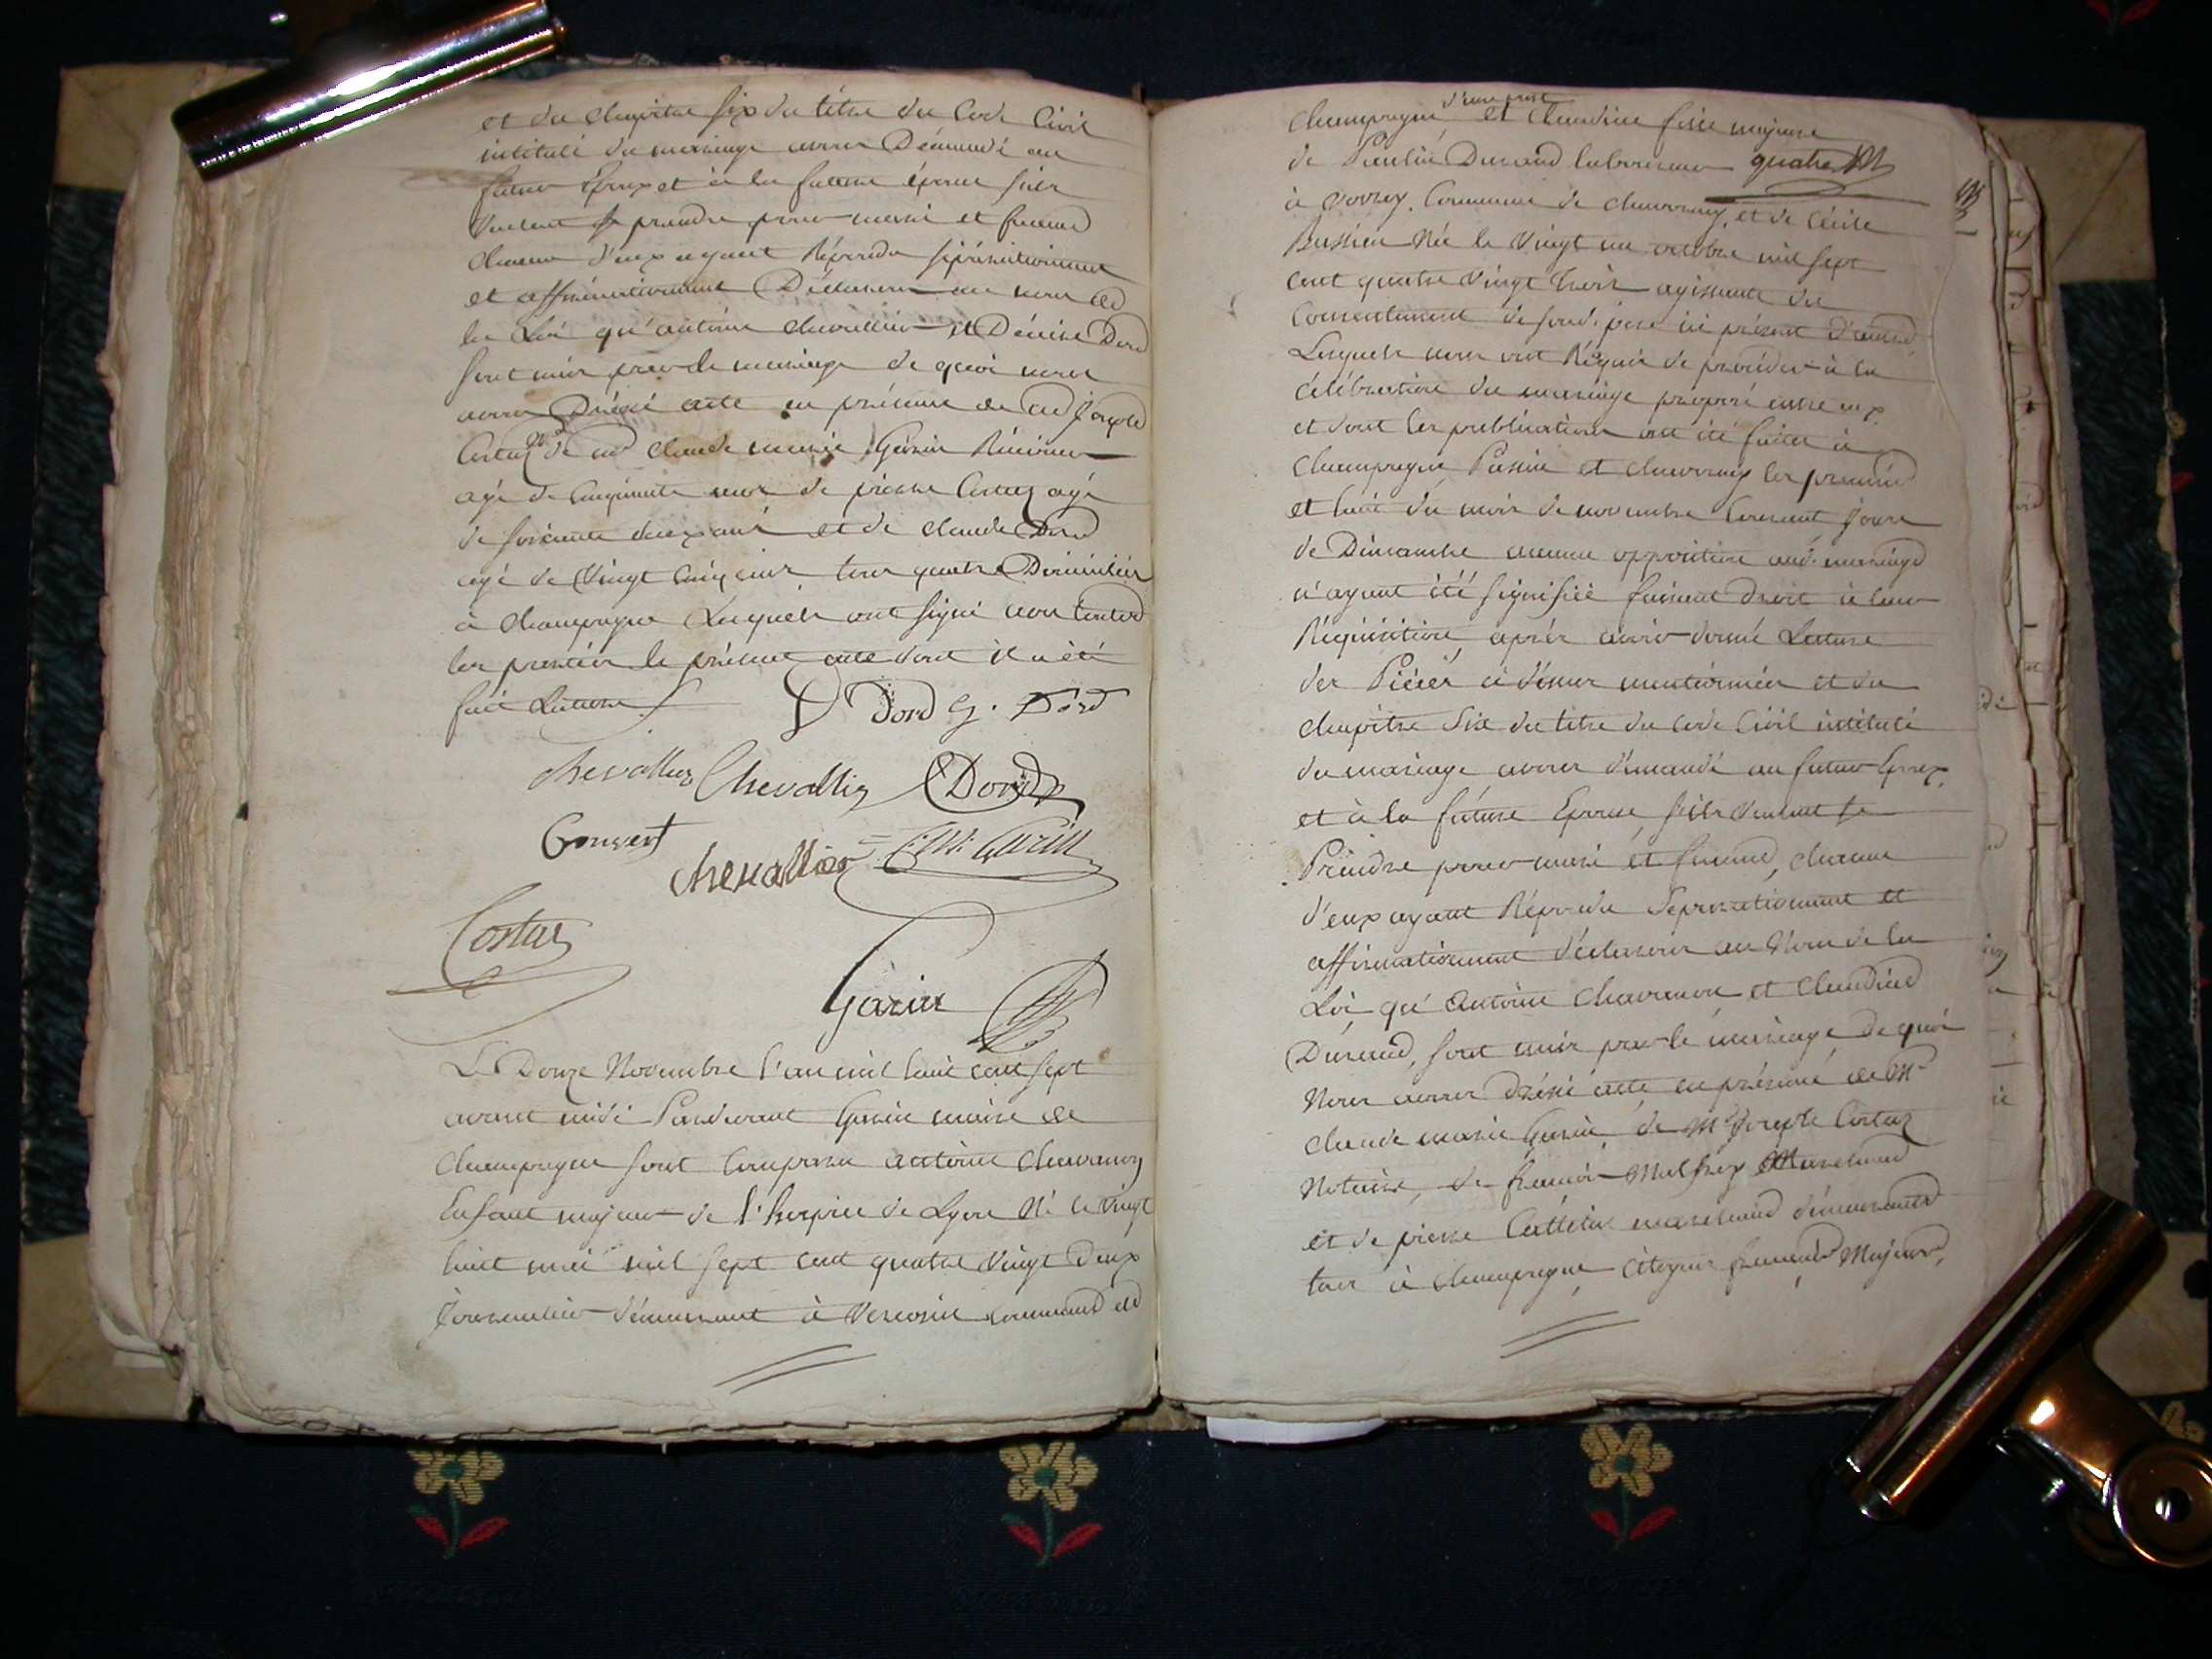 et du chapitre six du titre du Code Civil
intitulé du mariage avons Démandé au
futur Epoux et à la future épouse s'ils
veulent se prendre pour mari et femme
chacun d'eux ayant Répondu séparément
et affirmativement Déclarons au nom de
la Loi qu'antoine chevallier et Dénise Dord
sont unis par le mariage de quoi nous
avons Dréssé acte en présence de Joseph
Costaz de claude marie Garin
agé de Cinquante de pierre Costaz agé
de soixante deux ans et de claude Dord
agé de Vingt Cinq ans tous quatre Domiciliés
à champagne Lesquels ont signé avec
les parties le présent acte dont il a été
fait Lecture
Dord G. Dord
chevallier Chevallier Dord
Convert
chevallier C M. Garin
Costaz
Garin
Le Douze Novembre l'an mil huit cent sept
avant midi Pardevant Garin maire de
champagne sont Comparus antoine chavanon
Enfant majeur de l'hospice de Lyon Né le Vingt
huit mai mil sept cent quatre Vingt Deux
journalier démeurant à Commune de
champagne d'une part et claudine fille majeure
de Durand laboureur quatre
à Vovray, Commune de chavornay, et de Cécile
Née le Vingt un octobre mil sept
cent quatre Vingt trois agissante du
Consentement de son d. pere ici présent D'autre,
Lesquels nous ont Réquis de procéder à la
célébration du mariage projeté entre eux
et dont les publications ont été faites à
champagne Passin et chavornay les premier
et huit du mois de novembre Courant jours
de Dimanche aucune opposition aud. mariage
n'ayant été signifiée faisant droit à leur
Réquisition, après avoir donné Lecture
des Pièces ci déssus mentionnées et du
chapitre Six du titre du Code Civil intitulé
du mariage avons démandé au futur Epoux,
et à la future Epouse s'ils veulent se
Prendre pour mari et femme, chacun
d'eux ayant Répondu Séparément et
affirmativement déclarons au Nom de la
Loi qu'Antoine Chavanon et Claudine
Durand, sont unis par le mariage de quoi
Nous avons Dréssé acte en présence de Mr
claude marie Garin, de Mr Joseph Costaz
Notaire, de françois Marchand
et de pierre marchand démeurants
tous à champagne, Citoyens français Majeurs,